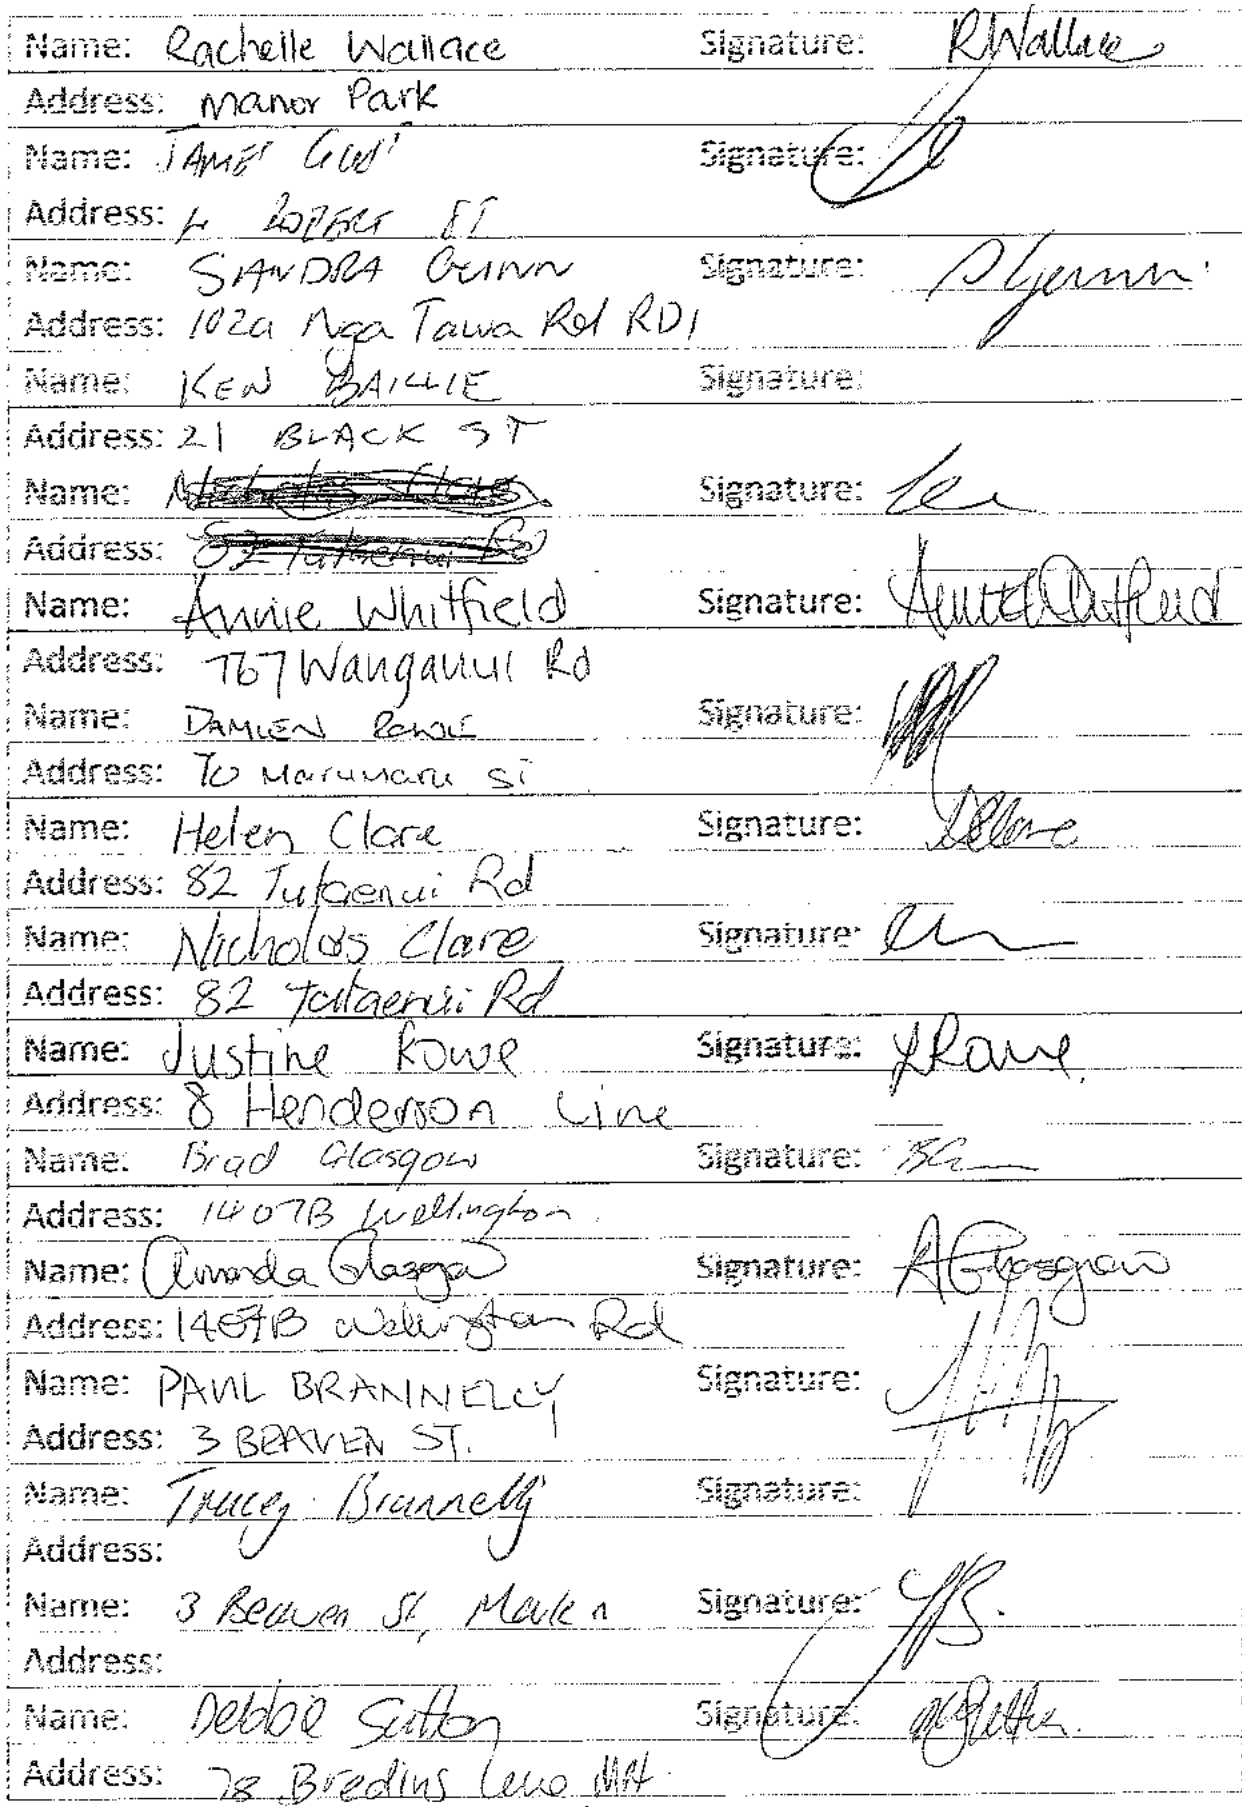 Name: Rachelle Wallace Signature: RWallace
Address: Manor Park
Name: JAMES Signature:
Address: 4 ROBERT ST
Name: SANDRA GUNN Signature: SGunn.
Address: 102a Nga Tawa Rd RD1
Name: KEN BAILLIE Signature:
Address: 21 BLACK ST
Name: Signature:
Address: 82 Tutaenui Rd
Name: Annie Whitfield Signature:
Address: 767 Wanganui Rd
Name: DAMIEN ROWE Signature:
Address: 70 Marumaru St
Name: Helen Clare Signature: HClare
Address: 82 Tutaenui Rd
Name: Nicholas Clare Signature:
Address: 82 Tutaenui Rd
Name: Justine Rowe Signature: JRowe.
Address: 8 Henderson Line
Name: Brad Glasgow Signature:
Address: 1407B Wellington.
Name: Amanda Glasgow Signature: AGlasgow
Address: 1407B Wellington Rd
Name: PAUL BRANNELLY Signature:
Address: 3 BEAVEN ST.
Name: Tracey Brannelly Signature:
Address:
Name: 3 Beaven St, Signature:
Address:
Name: Debbie Sutton Signature:
Address: 78 Bredins Line